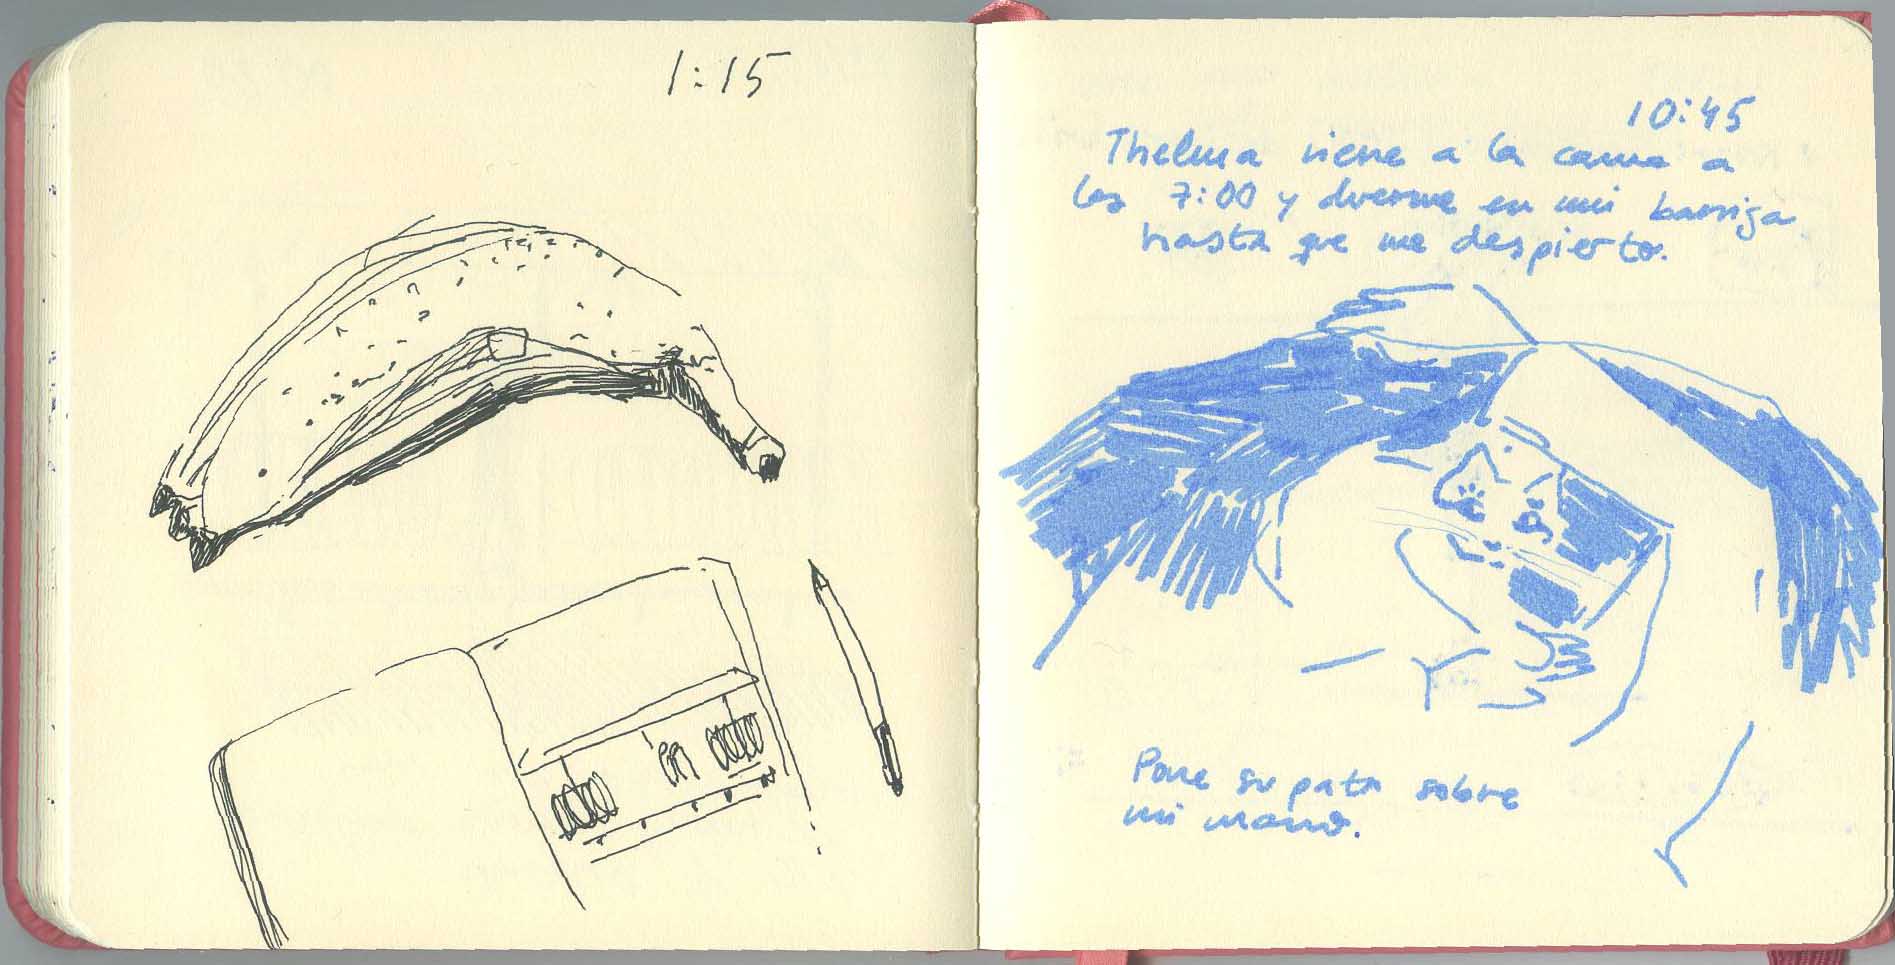 1:15
10:45
Thelma viene a la cama a
las 7:00 y duerme en mi barriga
hasta que me despierto.
Pone su pata sobre
mi mano.